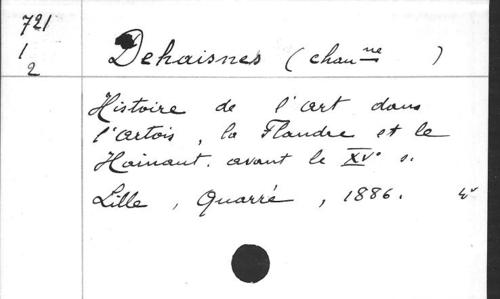 721
1
2
Dehaisnes (chan.ne )
Histoire de l'art dans
l'Artois, la Flandre et le
Hainaut. avant le XVe s.
Lille, Quarré, 1886.